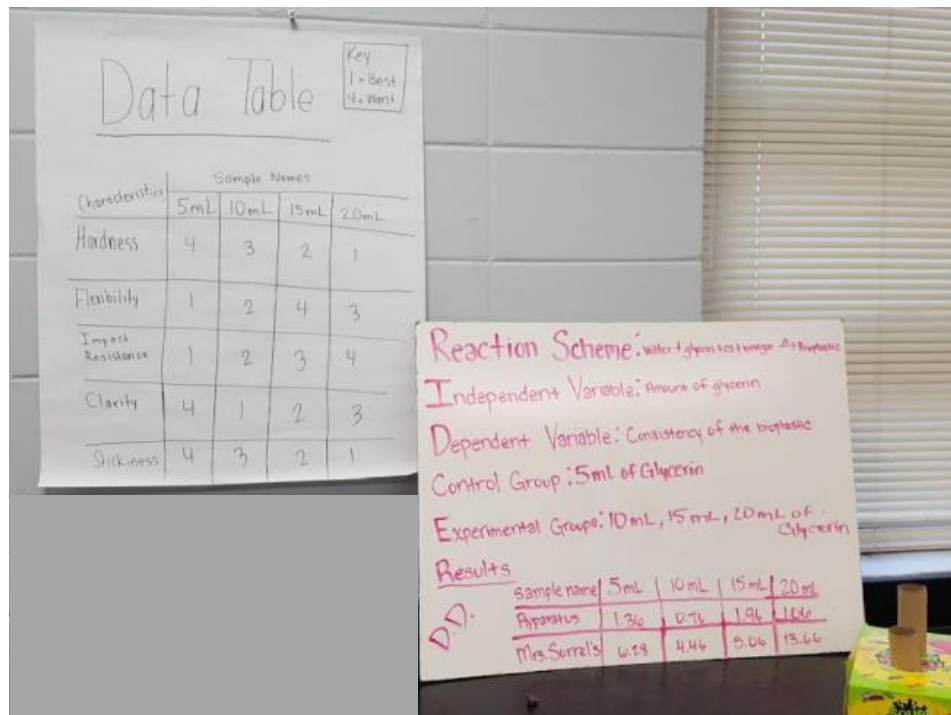 Data Table
Key
1 = Best
4 = Worst
Sample Names
Characteristics 5mL 10mL 15mL 20mL
Hardness 4 3 2 1
Flexibility 1 2 4 3
Impact
Resistance 1 2 3 4
Clarity 4 1 2 3
Stickiness 4 3 2 1
Reaction Scheme: Water + vinegar Bioplastic
Independent Variable: Amount of glycerin
Dependent Variable: Consistency of the bioplastic
Control Group: 5mL of Glycerin
Experimental Groups: 10mL, 15mL, 20mL of
Glycerin
Results
Sample name 5mL 10mL 15mL 20mL
Apparatus 1.36 0.76 1.96 1.06
Mrs. Sorrel's 6.28 4.46 5.06 13.66